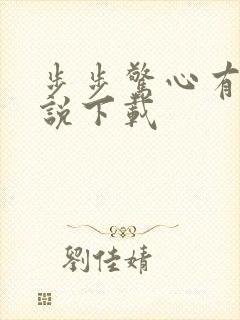 步步驚心有
說下載
劉佳婧